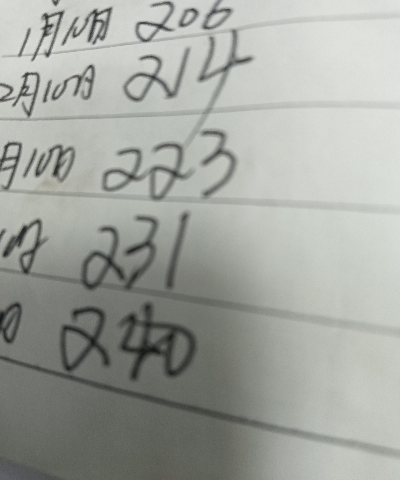 1月10日 206
2月10日 214
月10日 223
10日 231
日 240